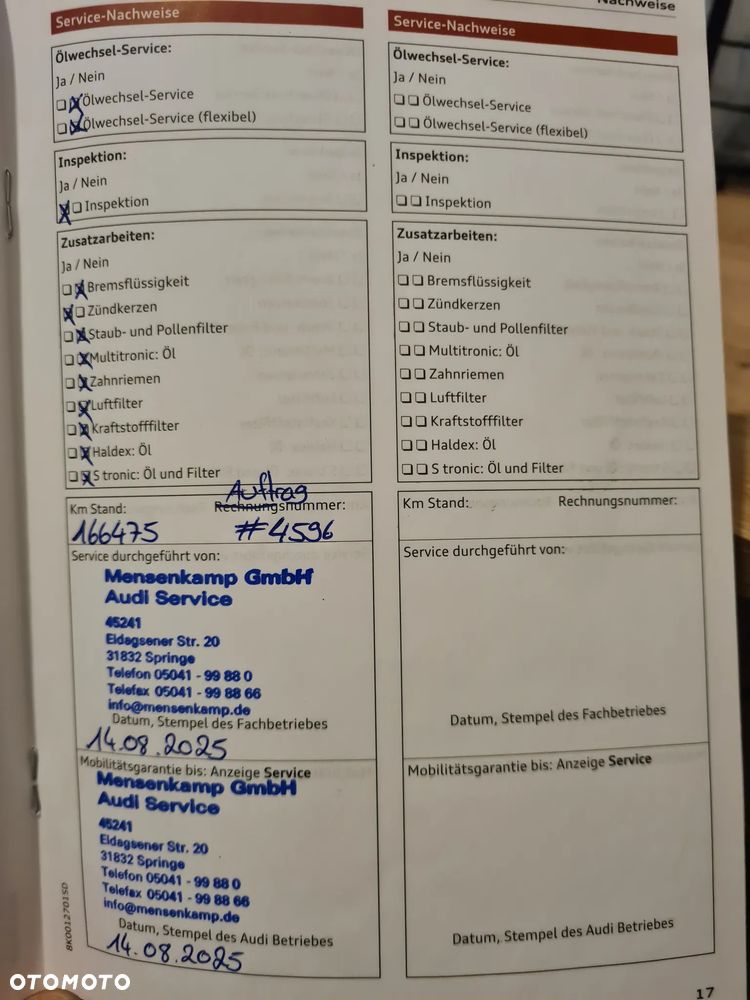 Nachweise
Service-Nachweise
Ölwechsel-Service:
Ja / Nein
Ölwechsel-Service
Ölwechsel-Service (flexibel)
Inspektion:
Ja / Nein
Inspektion
Zusatzarbeiten:
Ja / Nein
Bremsflüssigkeit
Zündkerzen
Staub- und Pollenfilter
Multitronic: Öl
Zahnriemen
Luftfilter
Kraftstofffilter
Haldex: Öl
S tronic: Öl und Filter
Auftrag
Km Stand: Rechnungsnummer:
166475 #4596
Service durchgeführt von:
Mensenkamp GmbH
Audi Service
45241
Eldagsener Str. 20
31832 Springe
Telefon 05041 - 99 88 0
Telefax 05041 - 99 88 66
info@mensenkamp.de
Datum, Stempel des Fachbetriebes
14.08.2025
Mobilitätsgarantie bis: Anzeige Service
Mensenkamp GmbH
Audi Service
45241
Eldagsener Str. 20
31832 Springe
Telefon 05041 - 99 88 0
Telefax 05041 - 99 88 66
info@mensenkamp.de
Datum, Stempel des Audi Betriebes
14.08.2025
8K0012701SD
Service-Nachweise
Ölwechsel-Service:
Ja / Nein
Ölwechsel-Service
Ölwechsel-Service (flexibel)
Inspektion:
Ja / Nein
Inspektion
Zusatzarbeiten:
Ja / Nein
Bremsflüssigkeit
Zündkerzen
Staub- und Pollenfilter
Multitronic: Öl
Zahnriemen
Luftfilter
Kraftstofffilter
Haldex: Öl
S tronic: Öl und Filter
Km Stand: Rechnungsnummer:
Service durchgeführt von:
Datum, Stempel des Fachbetriebes
Mobilitätsgarantie bis: Anzeige Service
Datum, Stempel des Audi Betriebes
17
OTOMOTO